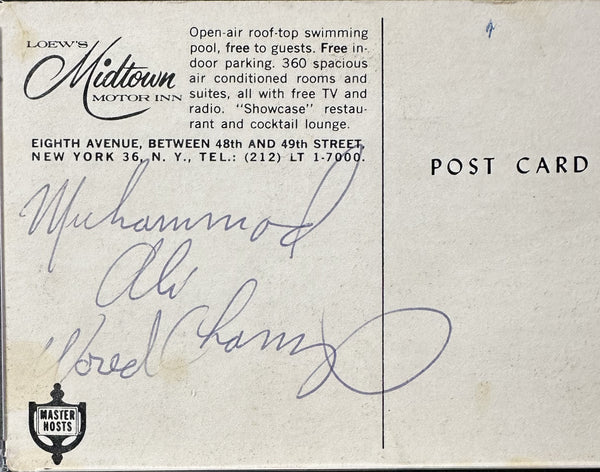 LOEW'S
Midtown
MOTOR INN
Open-air roof-top swimming
pool, free to guests. Free in-
door parking. 360 spacious
air conditioned rooms and
suites, all with free TV and
radio. "Showcase" restau-
rant and cocktail lounge.
EIGHTH AVENUE, BETWEEN 48th AND 49th STREET,
NEW YORK 36, N. Y., TEL.: (212) LT 1-7000.
POST CARD
Muhammad
Ali
World Champ
MASTER
HOSTS